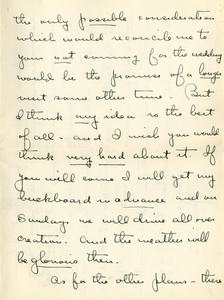 the only possible consideration
which would reconcile me to
your not coming for the wedding
would be the promise of a longer
visit some other time. But
I think my idea is the best
of all - and I wish you would
think very hard about it. If
you will come I will get my
buckboard in advance and on
Sunday we will drive all over
creation. And the weather will
be glorious then.
As for the other plans - then